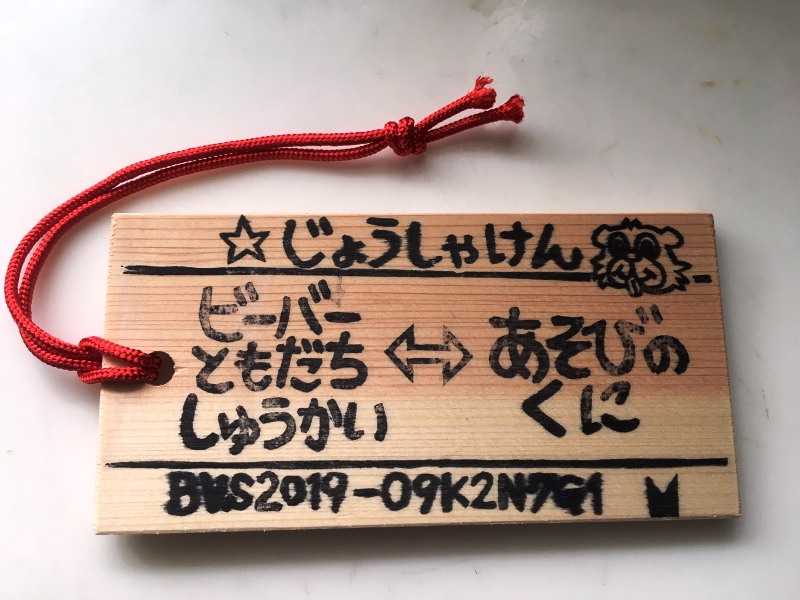 ☆じょうしゃけん
ビーバー
ともだち
しゅうかい
⇔
あそびの
くに
BVS2019-09K2N7G1